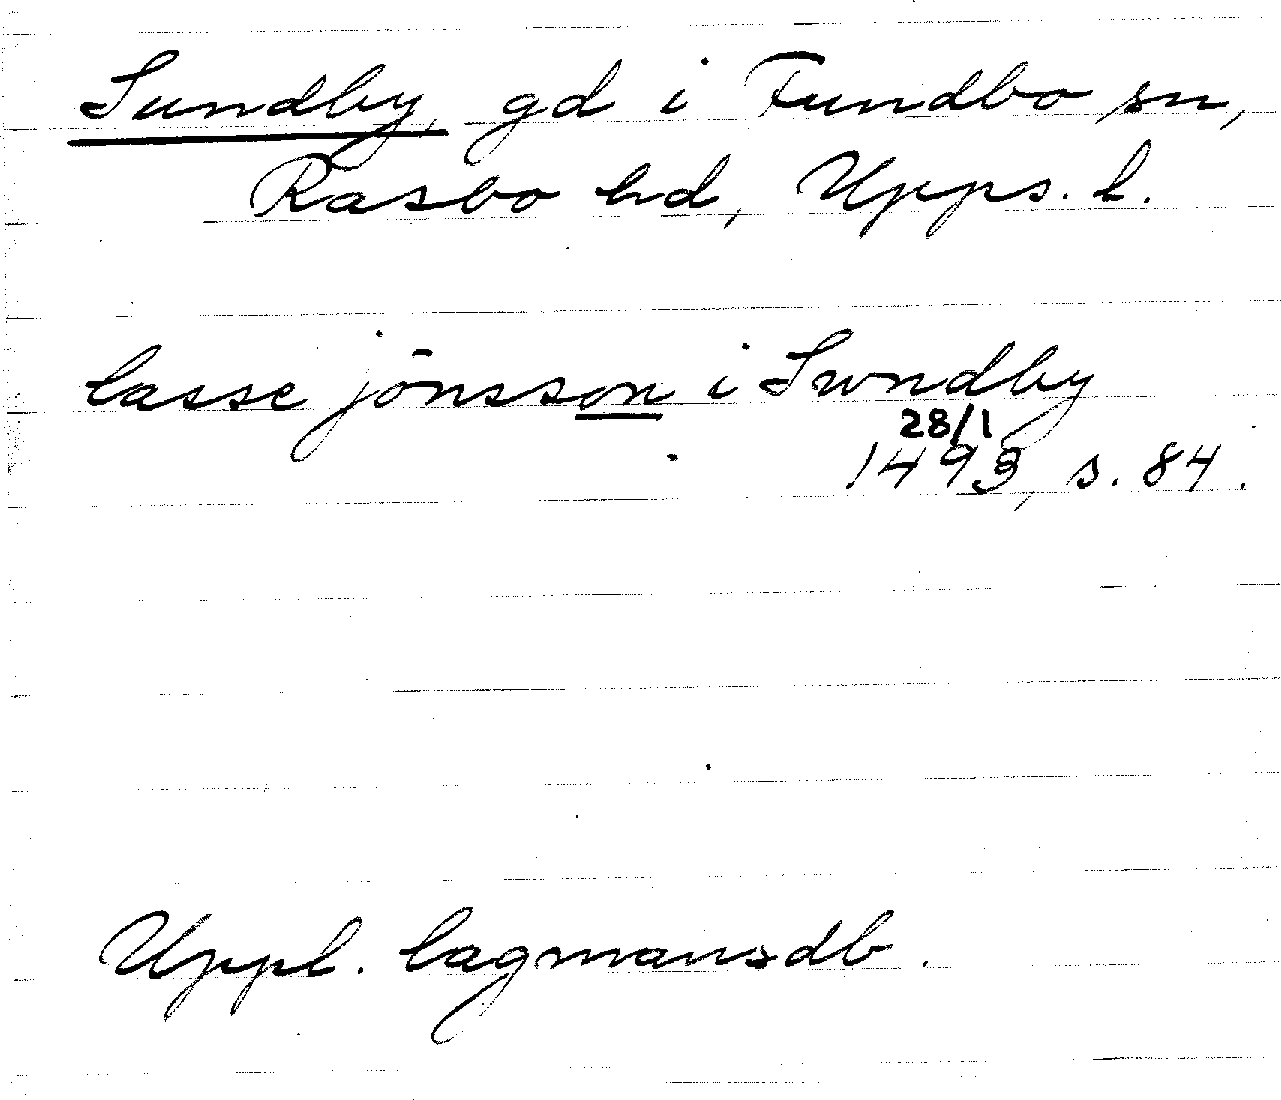 Sundby, gd i Funbo sn,
Rasbo hd, Upps. l.
lasse jōnsson i Swndby
28/1
1493, s. 84.
Uppl. lagmansdb.